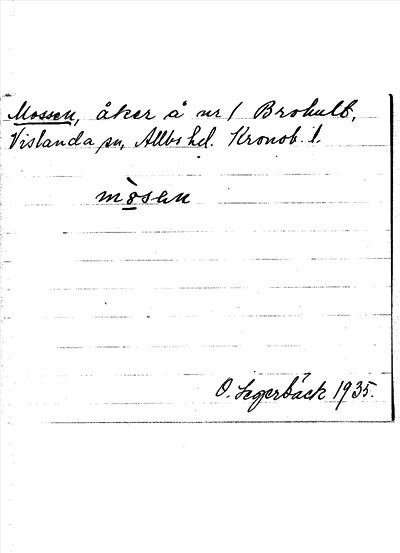 Mossen, åker å nr 1 Brohult,
Vislanda sn, Allbo hd. Kronob. l.
mòsen
O. Segerbäck 1935.